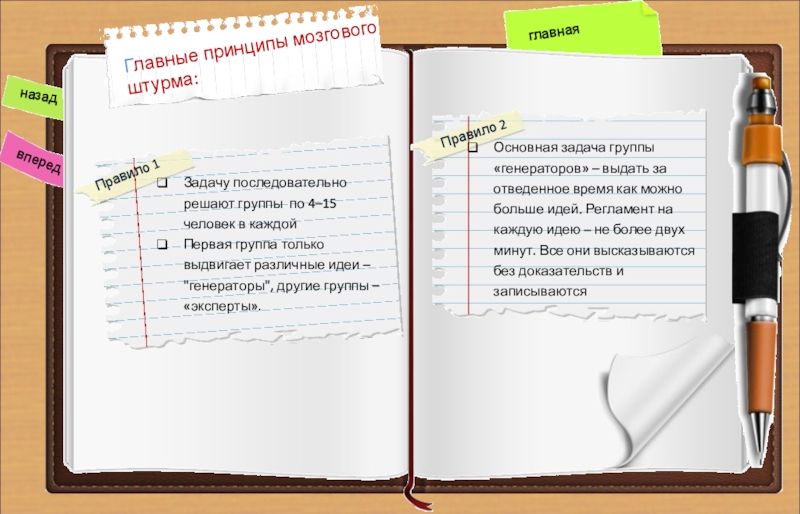 главная
Главные принципы мозгового
штурма:
назад
вперед
Правило 1
Задачу последовательно
решают группы по 4–15
человек в каждой
Первая группа только
выдвигает различные идеи –
"генераторы", другие группы –
«эксперты».
Правило 2
Основная задача группы
«генераторов» – выдать за
отведенное время как можно
больше идей. Регламент на
каждую идею – не более двух
минут. Все они высказываются
без доказательств и
записываются